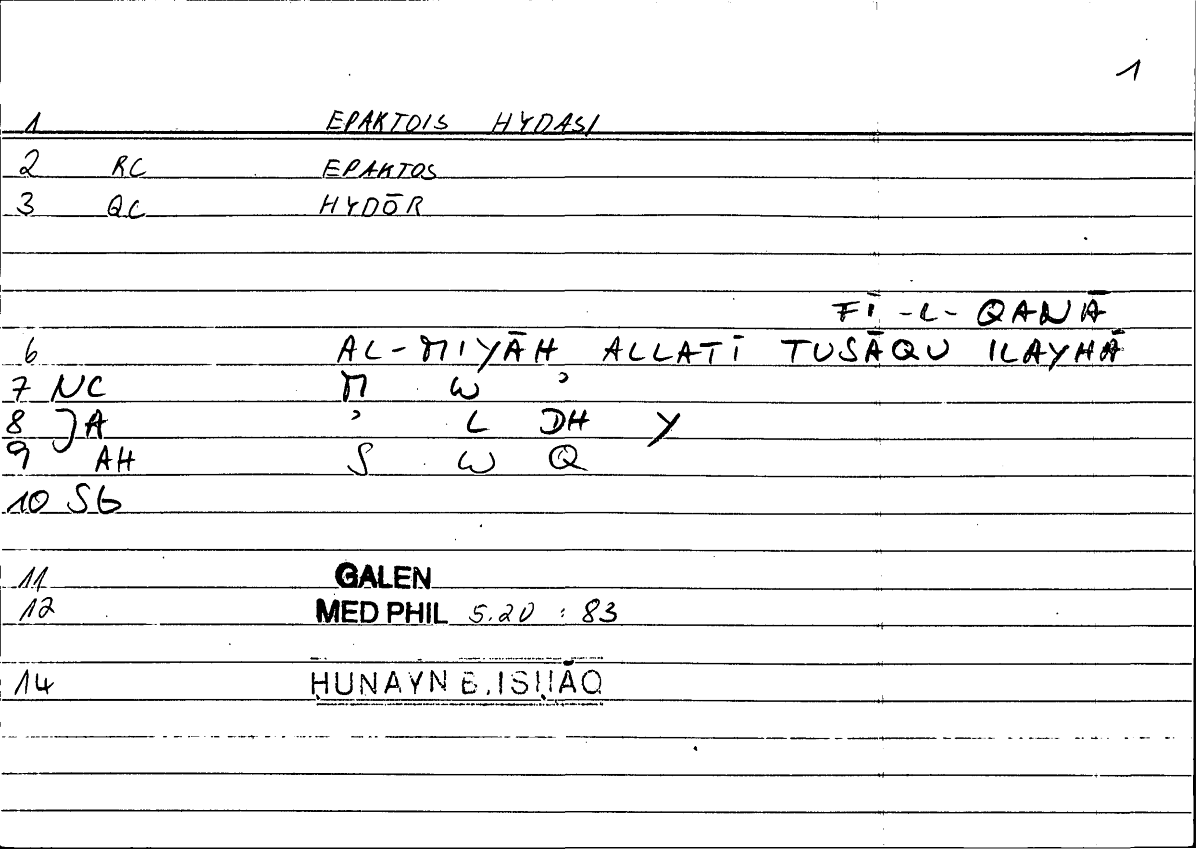 1
1 EPAKTOIS HYDASI
2 RC EPAKTOS
3 QC HYDŌR
FĪ -L- QANĀ
6 AL-MIYĀH ALLATĪ TUSĀQU ILAYHĀ
7 NC M W ʾ
8 JA ʾ L DH Y
9 AH S W Q
10 Sb
11 GALEN
12 MED PHIL 5.20 : 83
14 ḤUNAYN B. ISḤĀQ